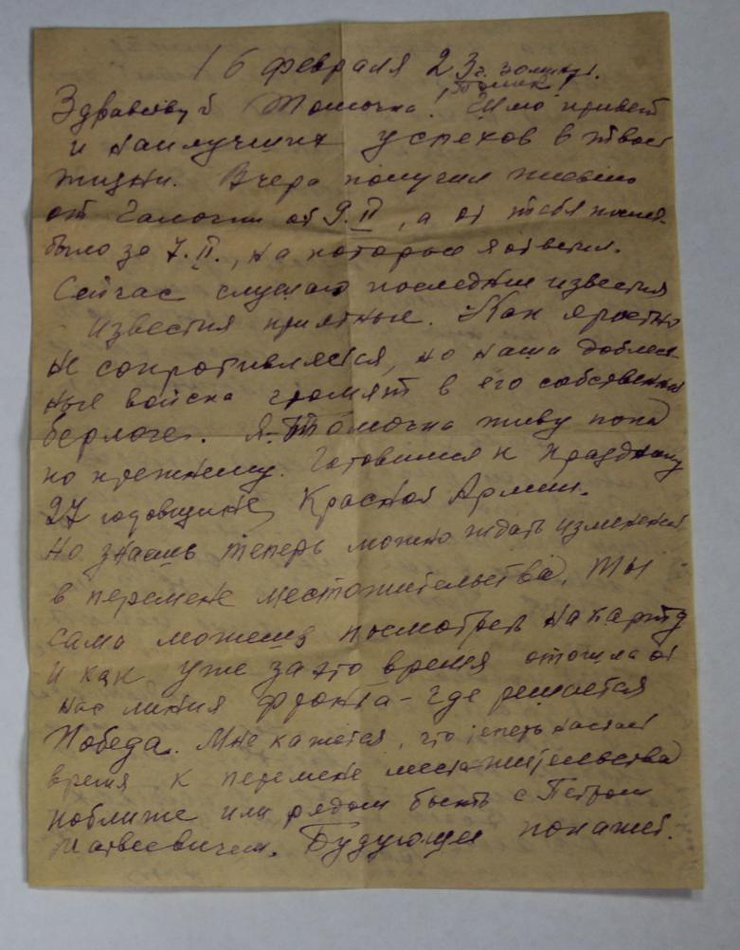 16 февраля 23 ч.
Здравствуй Томочка! Шлю привет
и наилучших успехов в твоей
жизни. Вчера получил письмо
от Галочки от 9.II, а от тебя письмо
было за 7.II., на которые я ответил.
Сейчас слушаю последние известия
известия приятные. Как яростно
не сопротивляется, но наша доблест-
ные войска громят в его собственной
берлоге. Я Томочка живу пока
по прежнему. Готовимся к празднику
27 годовщине Красной Армии.
Но знаешь теперь можно ждать изменений
в перемене местожительства. Ты
сама можешь посмотреть на карту
и как уже за это время отошла от
нас линия фронта - где решается
Победа. Мне кажется, что теперь настает
время к перемене местожительства
поближе или рядом быть с Петром
Матвеевичем. Будующее покажет.